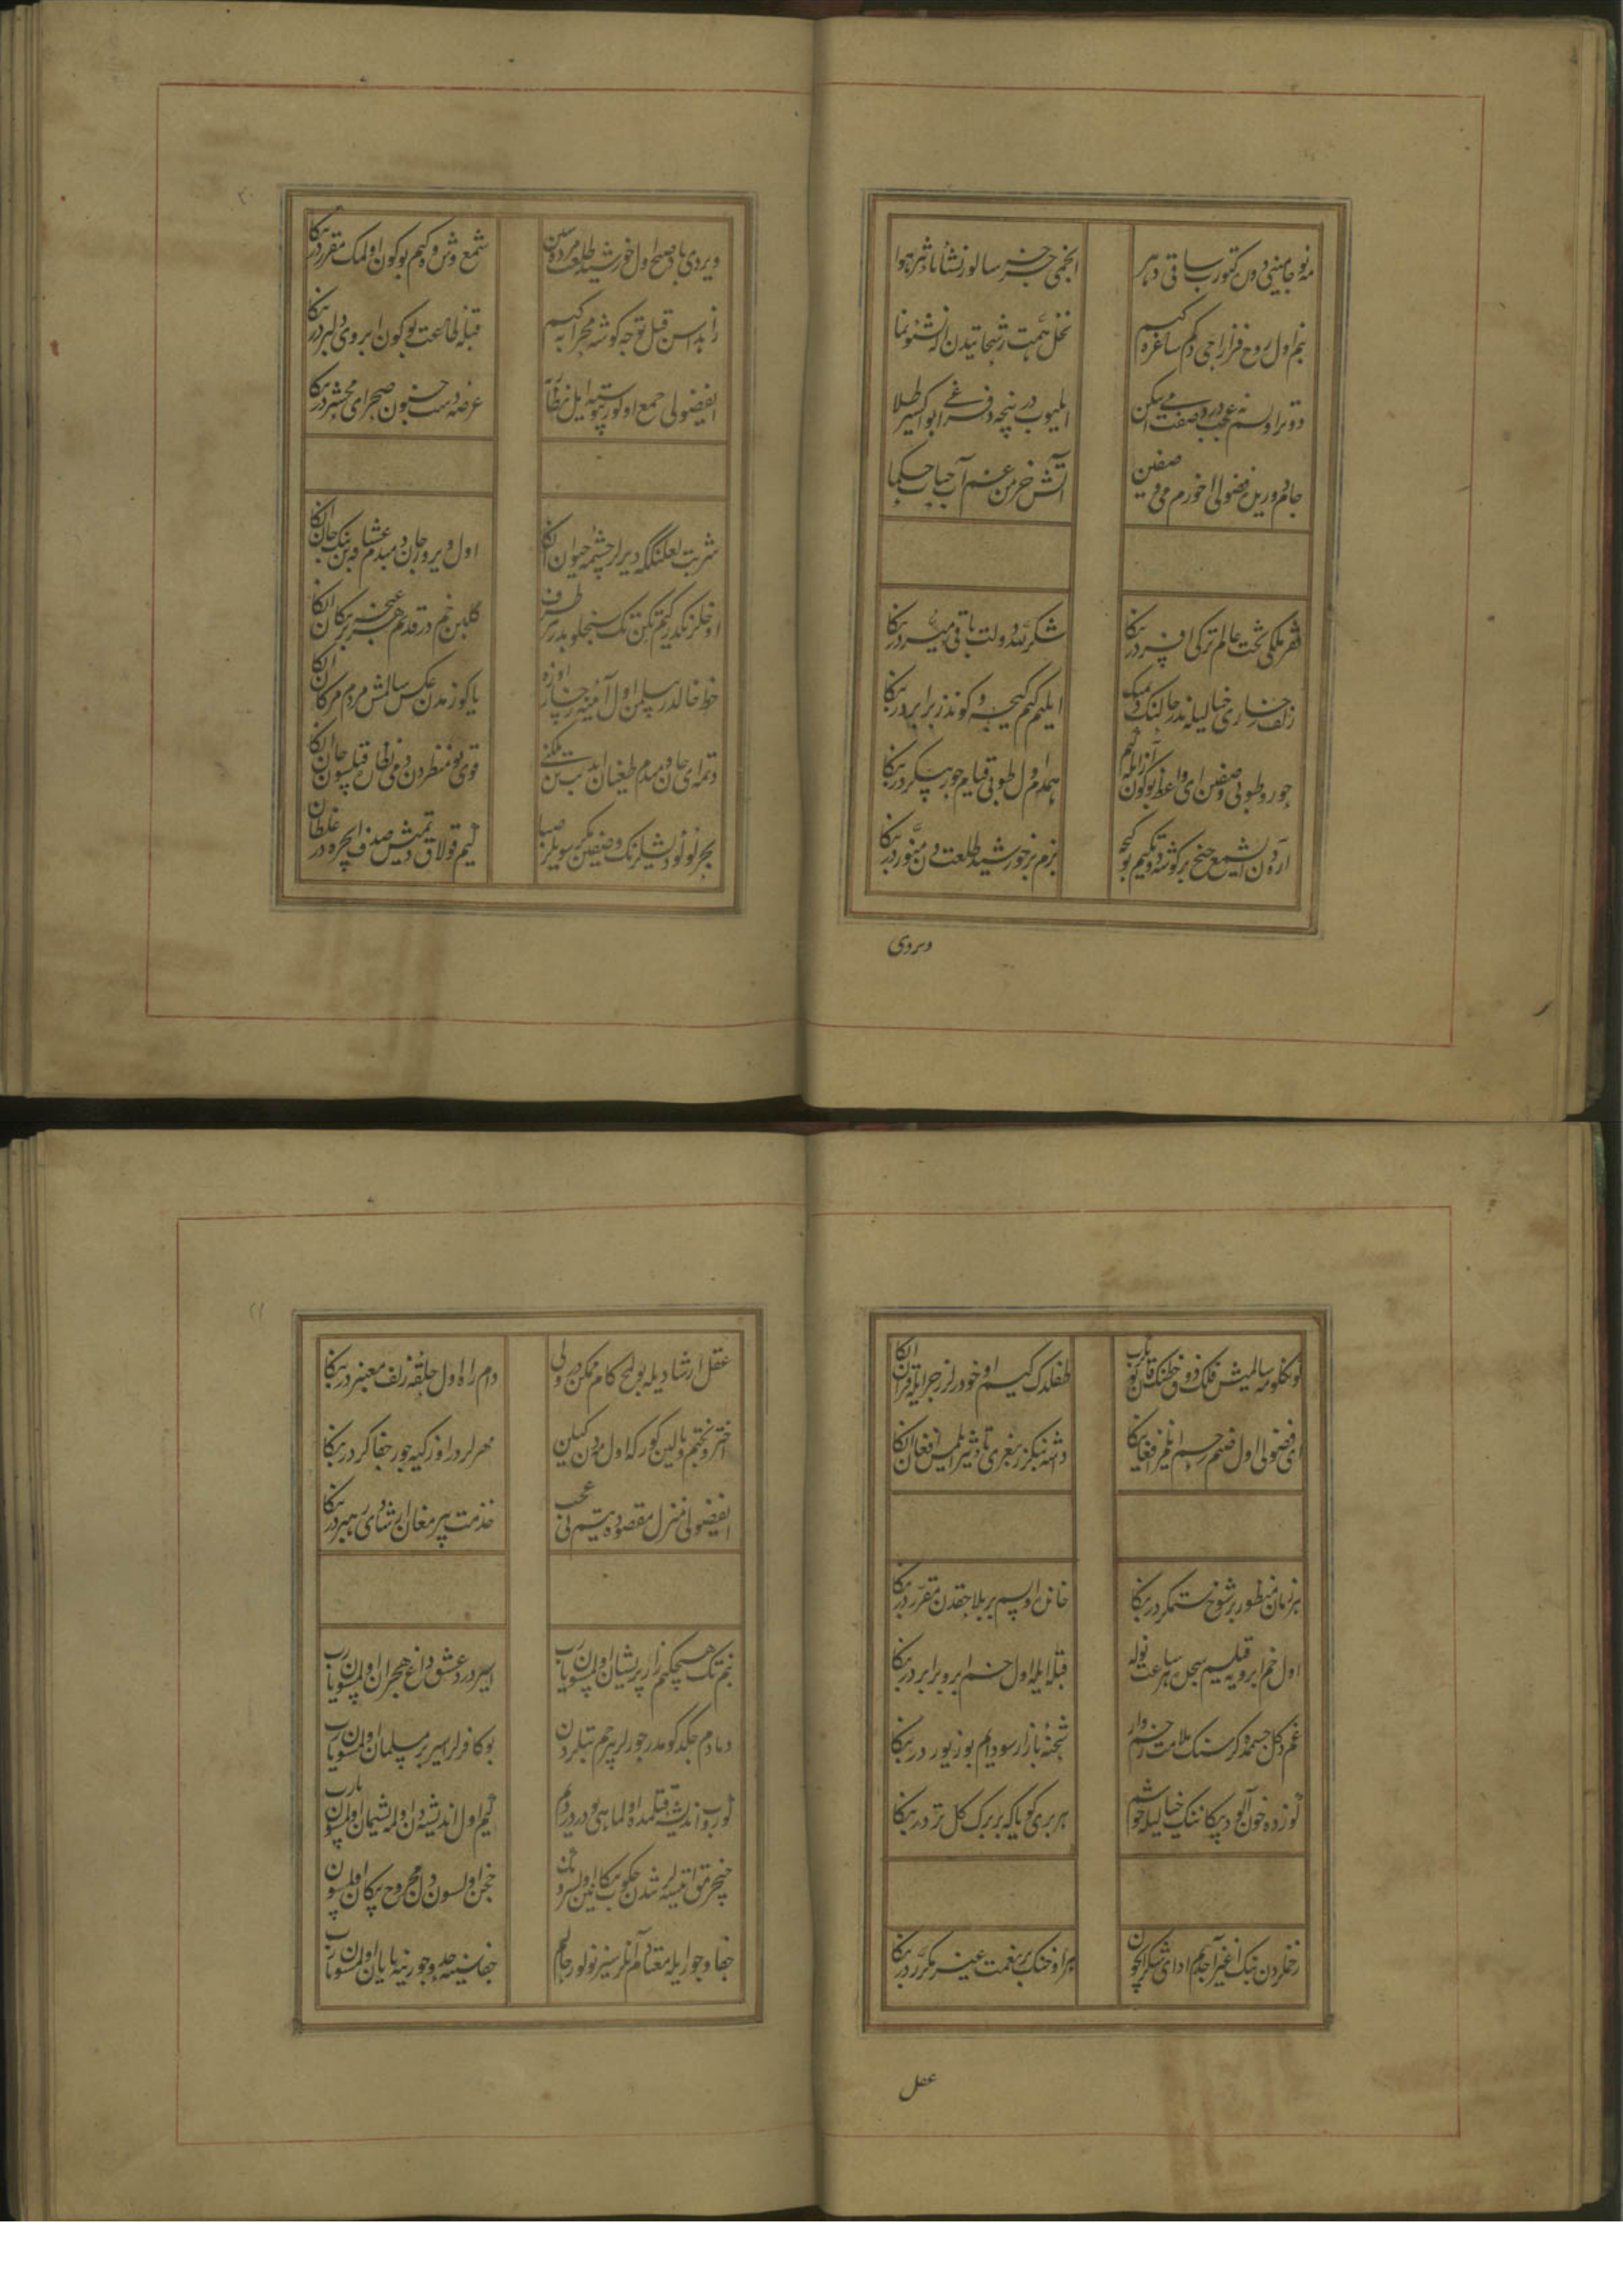 مه نو جامینی دون کتور ساقی دهر انجمی جزر سالور نشأ تأثیر هوا
بنم اول روح فزا راحی دکم ساغرده کیم نخل همت رشحاتیدن آلر نشو و نما
دوتر اولسه نه عجب درد صفت می مسکن ایلیوب در نیجه دفراغی ابو اکسیر طلا
جام دورین فضولی اخورم می وصفین آتش خرمن غم آب حیات حکما
فقر ملکی تخت عالم ترکی افسردر بکا شکر لله دولت باقی میسردر بکا
زلف رخساری خیالیله ندر حالنک دیمک ایلکیم کیم کیجه و کوندز برابردر بکا
حور و طوبی وصفین ای واعظ بوکون از ایله کیم همدم اول طوبی قیام حور پیکردر بکا
آرادن ای شمع جنح بر کوشه دوتکیم بو کیجه بزم بر خورشید طلعت دن منوردر بکا
ویردی
ویردی باد صبح اول خورشید طلعت مژده سین شمع وش وکیم بوکون اولمک مقرردر بکا
زاهدا سن قیل توجه کوشه محرابه کیم قبله طاعت بوکون ابروی دلبردر بکا
ای فضولی جمع اولور چوق سته ایل نظاره عرصه دشت جنون صحرای محشردر بکا
شربت لعلنکه دیرلر چشمه حیوان انکا اول ویرور جان دمبدم عشاقه بنک جان انکا
خط خالدر بیلمن اول آئینه رخساره اوزه یا کوزمدن عکس سالمش مردم مژکان انکا
دوتمه ای جان دمبدم طغیان ایدوب تن ملکنی قوی بو منظردن دمی نظاره قیلسون جان انکا
بحر لولو دیشلرنک وصفین مکر سویلر صبا کیم قولاق دوتمیش صدف ایچره در غلطان انکا
کونکلومه سالمیش فلک ذوق خطنک قان یوتدرب طفلدک کیم اوخودرلر زجر ایله قرآن انکا
ای فضولی اول صنم رحم ایلمز افغانکا داشه بنکزر بغری تأثیر ایلمیش افغان انکا
هر زمان منظور بر شوخ ستمکر در بکا خاندن اولسم بر بلا حقدن مقرردر بکا
اول خم ابرویه قیلیم سجده لر ساعت توله قبله ایله اول خم ابرو برابردر بکا
غم دکل جسممده کر سنک ملامت زخمی وار شحنه بازار سودایم بو زیوردر بکا
کوزده خون آلوده پیکاننک خیالیله خوشم هر بری کویا که بر برک کل تردر بکا
زخملردن بنک اغیز آچدم ادای شکر ایچون هر اوخنک بر نعمت غیر مکرردر بکا
عقل
عقل ارشادیله بولمخ کام ممکن در ولی دام راه اول حلقه زلف معنبردر بکا
اختر و بختم وبالین کور که اول مهردن کیلین مهرلردر اوزکیه جور و جفا کردر بکا
ای فضولی منزل مقصوده یتسم نی عجب خدمت پیر مغان ارشادی رهبردر بکا
بنم تک هیچ کیم زار پریشان اولمسون یارب اسیر درد عشق و داغ هجران اولمسون یارب
دمادم جکدکوم در جورلر بیرحم بتلردن بو کافرلر اسیر بر مسلمان اولمسون یارب
کورب اندیشه قتلمده اول ماهی بودر دردم کیم اول اندیشه دن اول مه پشیمان اولمسون یارب
جفا و جور ایله معتادم آنلرسیز نولور حالم جفاسینه حد و جورینه پایان اولمسون یارب